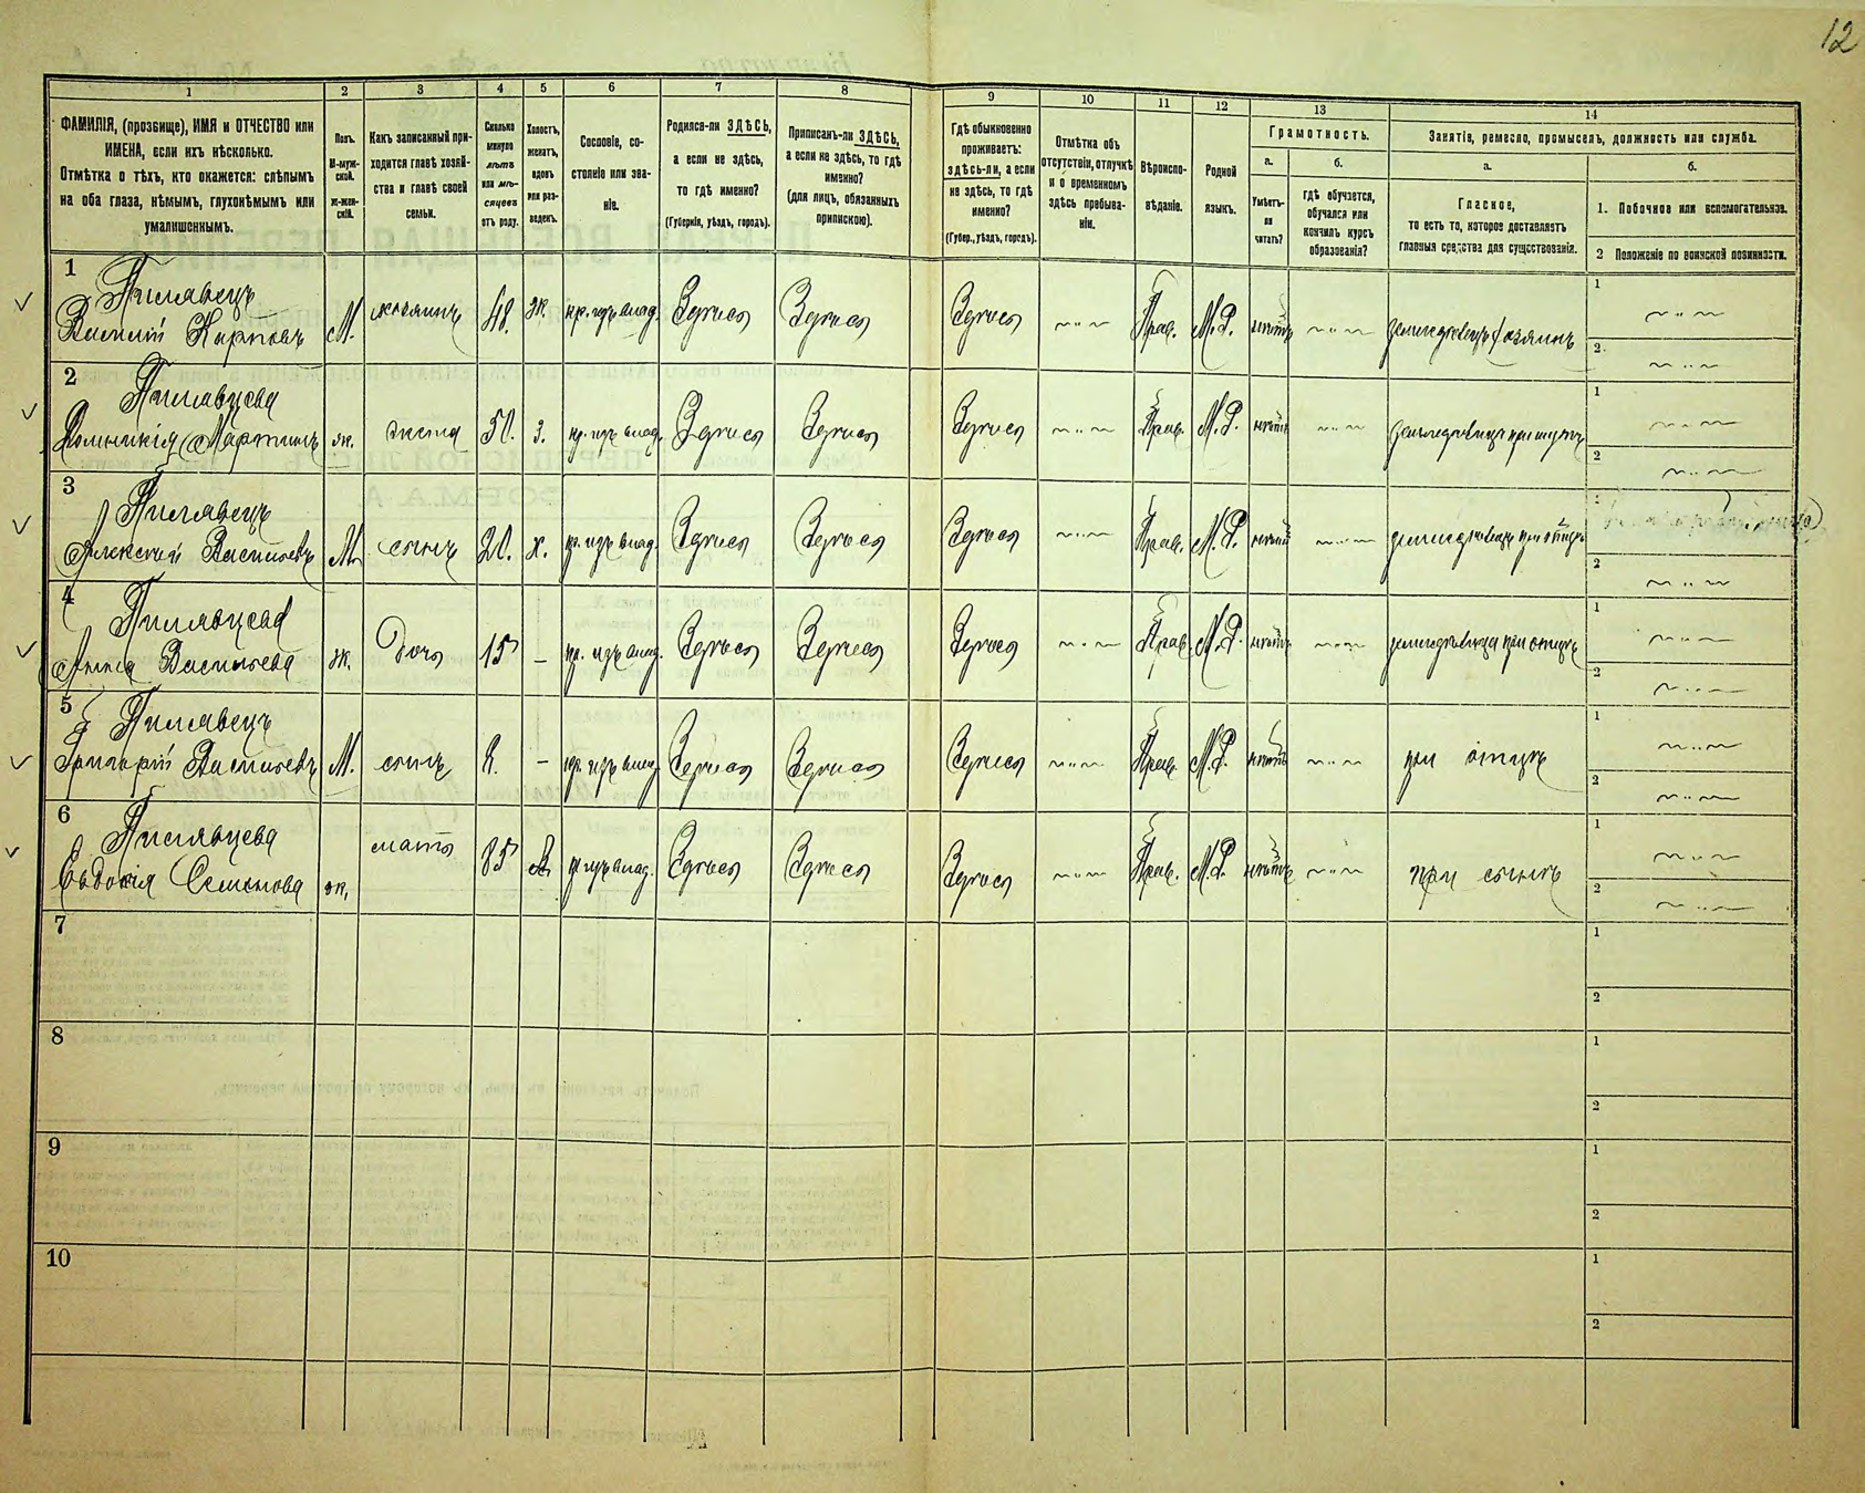 12
1 2 3 4 5 6 7 8 9 10 11 12 13 14
ФАМИЛІЯ, (прозвище), ИМЯ и ОТЧЕСТВО или
ИМЕНА, если ихъ нѣсколько.
Отмѣтка о тѣхъ, кто окажется: слѣпымъ
на оба глаза, нѣмымъ, глухонѣмымъ или
умалишеннымъ.
Полъ.
М-муж-
ской.
Ж-жен-
скій.
Какъ записанный при-
ходится главѣ хозяй-
ства и главѣ своей
семьи.
Сколько
минуло
лѣтъ
или мѣ-
сяцевъ
отъ роду.
Холостъ,
женатъ,
вдовъ
или раз-
веденъ.
Сословіе, со-
стояніе или зва-
ніе.
Родился-ли ЗДѢСЬ,
а если не здѣсь,
то гдѣ именно?
(Губернія, уѣздъ, городъ).
Приписанъ-ли ЗДѢСЬ,
а если не здѣсь, то гдѣ
именно?
(для лицъ, обязанныхъ
припискою).
Гдѣ обыкновенно
проживаетъ:
здѣсь-ли, а если
не здѣсь, то гдѣ
именно?
(Губер., уѣздъ, городъ).
Отмѣтка объ
отсутствіи, отлучкѣ
и о временномъ
здѣсь пребыва-
ніи.
Вѣроиспо-
вѣданіе.
Родной
языкъ.
Грамотность.
а.
Умѣетъ-
ли
читать?
б.
гдѣ обучается,
обучался или
кончилъ курсъ
образованія?
Занятіе, ремесло, промыселъ, должность или служба.
а.
Главное,
то есть то, которое доставляетъ
главныя средства для существованія.
б.
1. Побочное или вспомогательное.
2 Положеніе по воинской повинности.
1 Пилявець
Василій Карповъ М. хозяинъ 48. ж. кр. изъ влад. Здѣсь Здѣсь Здѣсь Прав. М.Р. нѣтъ земледѣлецъ хозяинъ 1 2
2 Пилявцева
Мартинъ ж. жена 50. з. кр. изъ влад. Здѣсь Здѣсь Здѣсь Прав. М.Р. нѣтъ 1 2
3 Пилявець
Алексѣй Васильевъ М. сынъ 20. х. кр. изъ влад. Здѣсь Здѣсь Здѣсь Прав. М.Р. нѣтъ земледѣлецъ при отцѣ 1 2
4 Пилявцева
Анна Васильева ж. дочь 15 – кр. изъ влад. Здѣсь Здѣсь Здѣсь Прав. М.Р. нѣтъ при отцѣ 1 2
5 Пилявець
Григорій Васильевъ М. сынъ 8. – кр. изъ влад. Здѣсь Здѣсь Здѣсь Прав. М.Р. нѣтъ при отцѣ 1 2
6 Пилявцева
Евдокія Семенова ж. мать 85 в. кр. изъ влад. Здѣсь Здѣсь Здѣсь Прав. М.Р. нѣтъ при сынѣ 1 2
7 1 2
8 1 2
9 1 2
10 1 2